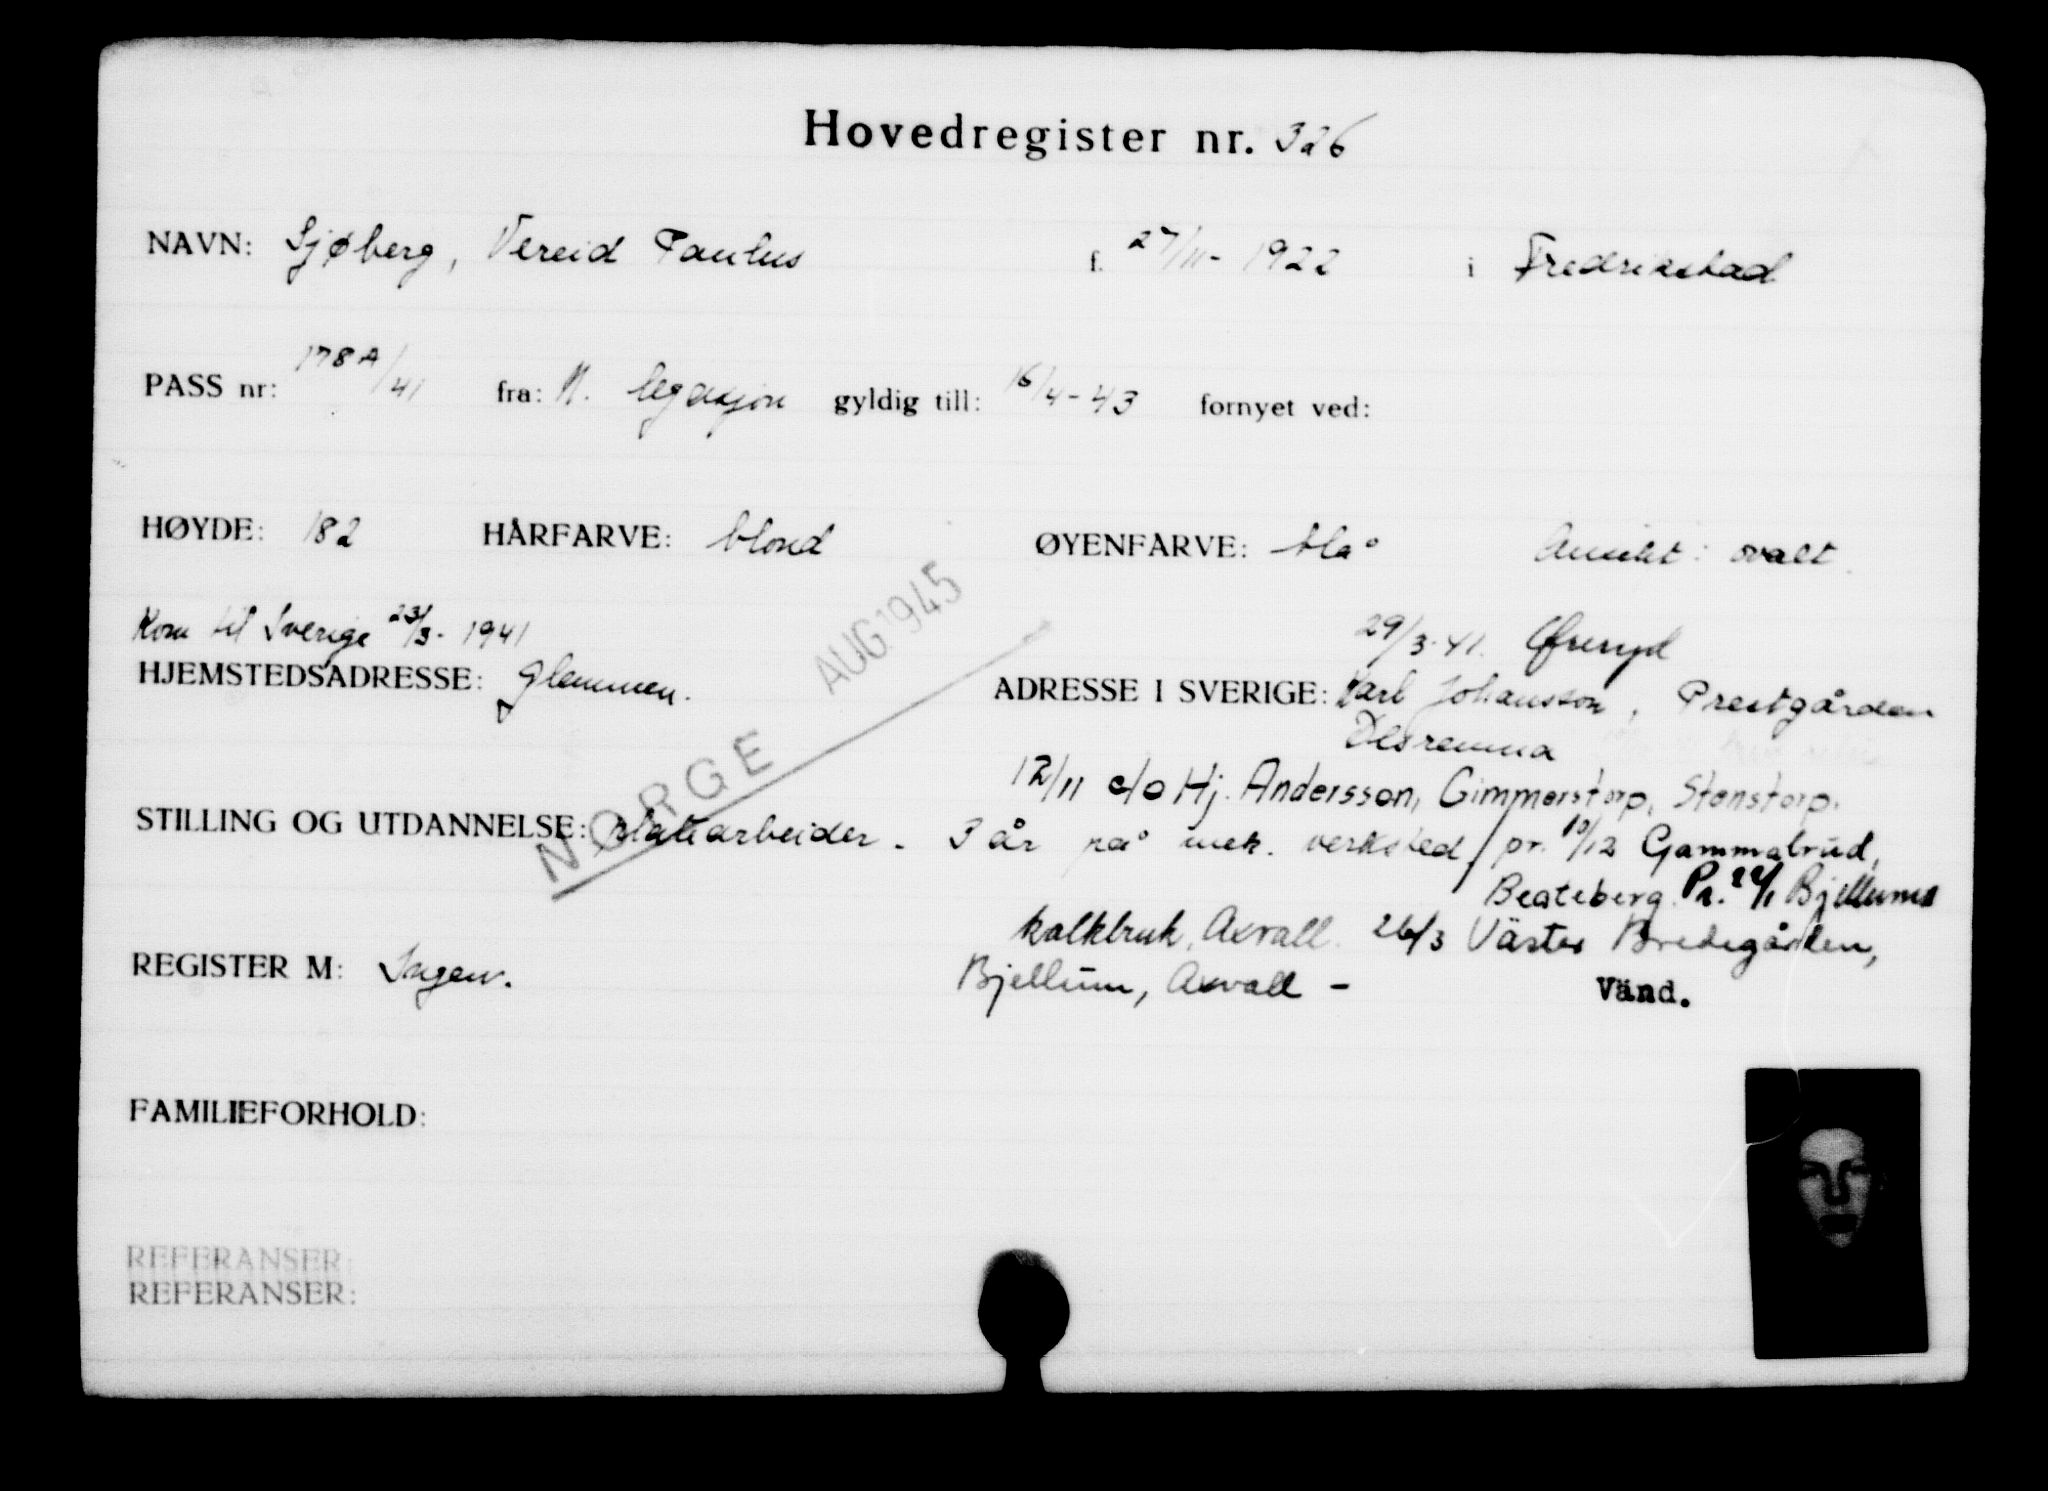 Hovedregister nr. 326
NAVN: Sjøberg, Vereid Paulus f. 27/11-1922 i Fredrikstad
PASS nr: 178A/41 fra: N. legasjon gyldig till: 16/4-43 fornyet ved:
HØYDE: 182 HÅRFARVE: blond ØYENFARVE: blå Ansikt: ovalt.
Kom til Sverige 23/3-1941 29/3-41. Øreryd
HJEMSTEDSADRESSE: Glemmen. ADRESSE I SVERIGE: Karl Johansson, Prestgården
AUG 1945
NORGE
12/11 c/o Hj. Andersson, Gimmerstorp, Stenstorp.
STILLING OG UTDANNELSE: platearbeider. 3 år på mek. verksted / pr. 10/12 Gammalrud,
Beateberg. Pr. 22/1 Bjellums
kalkbruk, Axvall. 26/3 Väster Bredegården,
REGISTER M: Ingen. Bjellum, Axvall - Vänd.
FAMILIEFORHOLD:
REFERANSER:
REFERANSER: